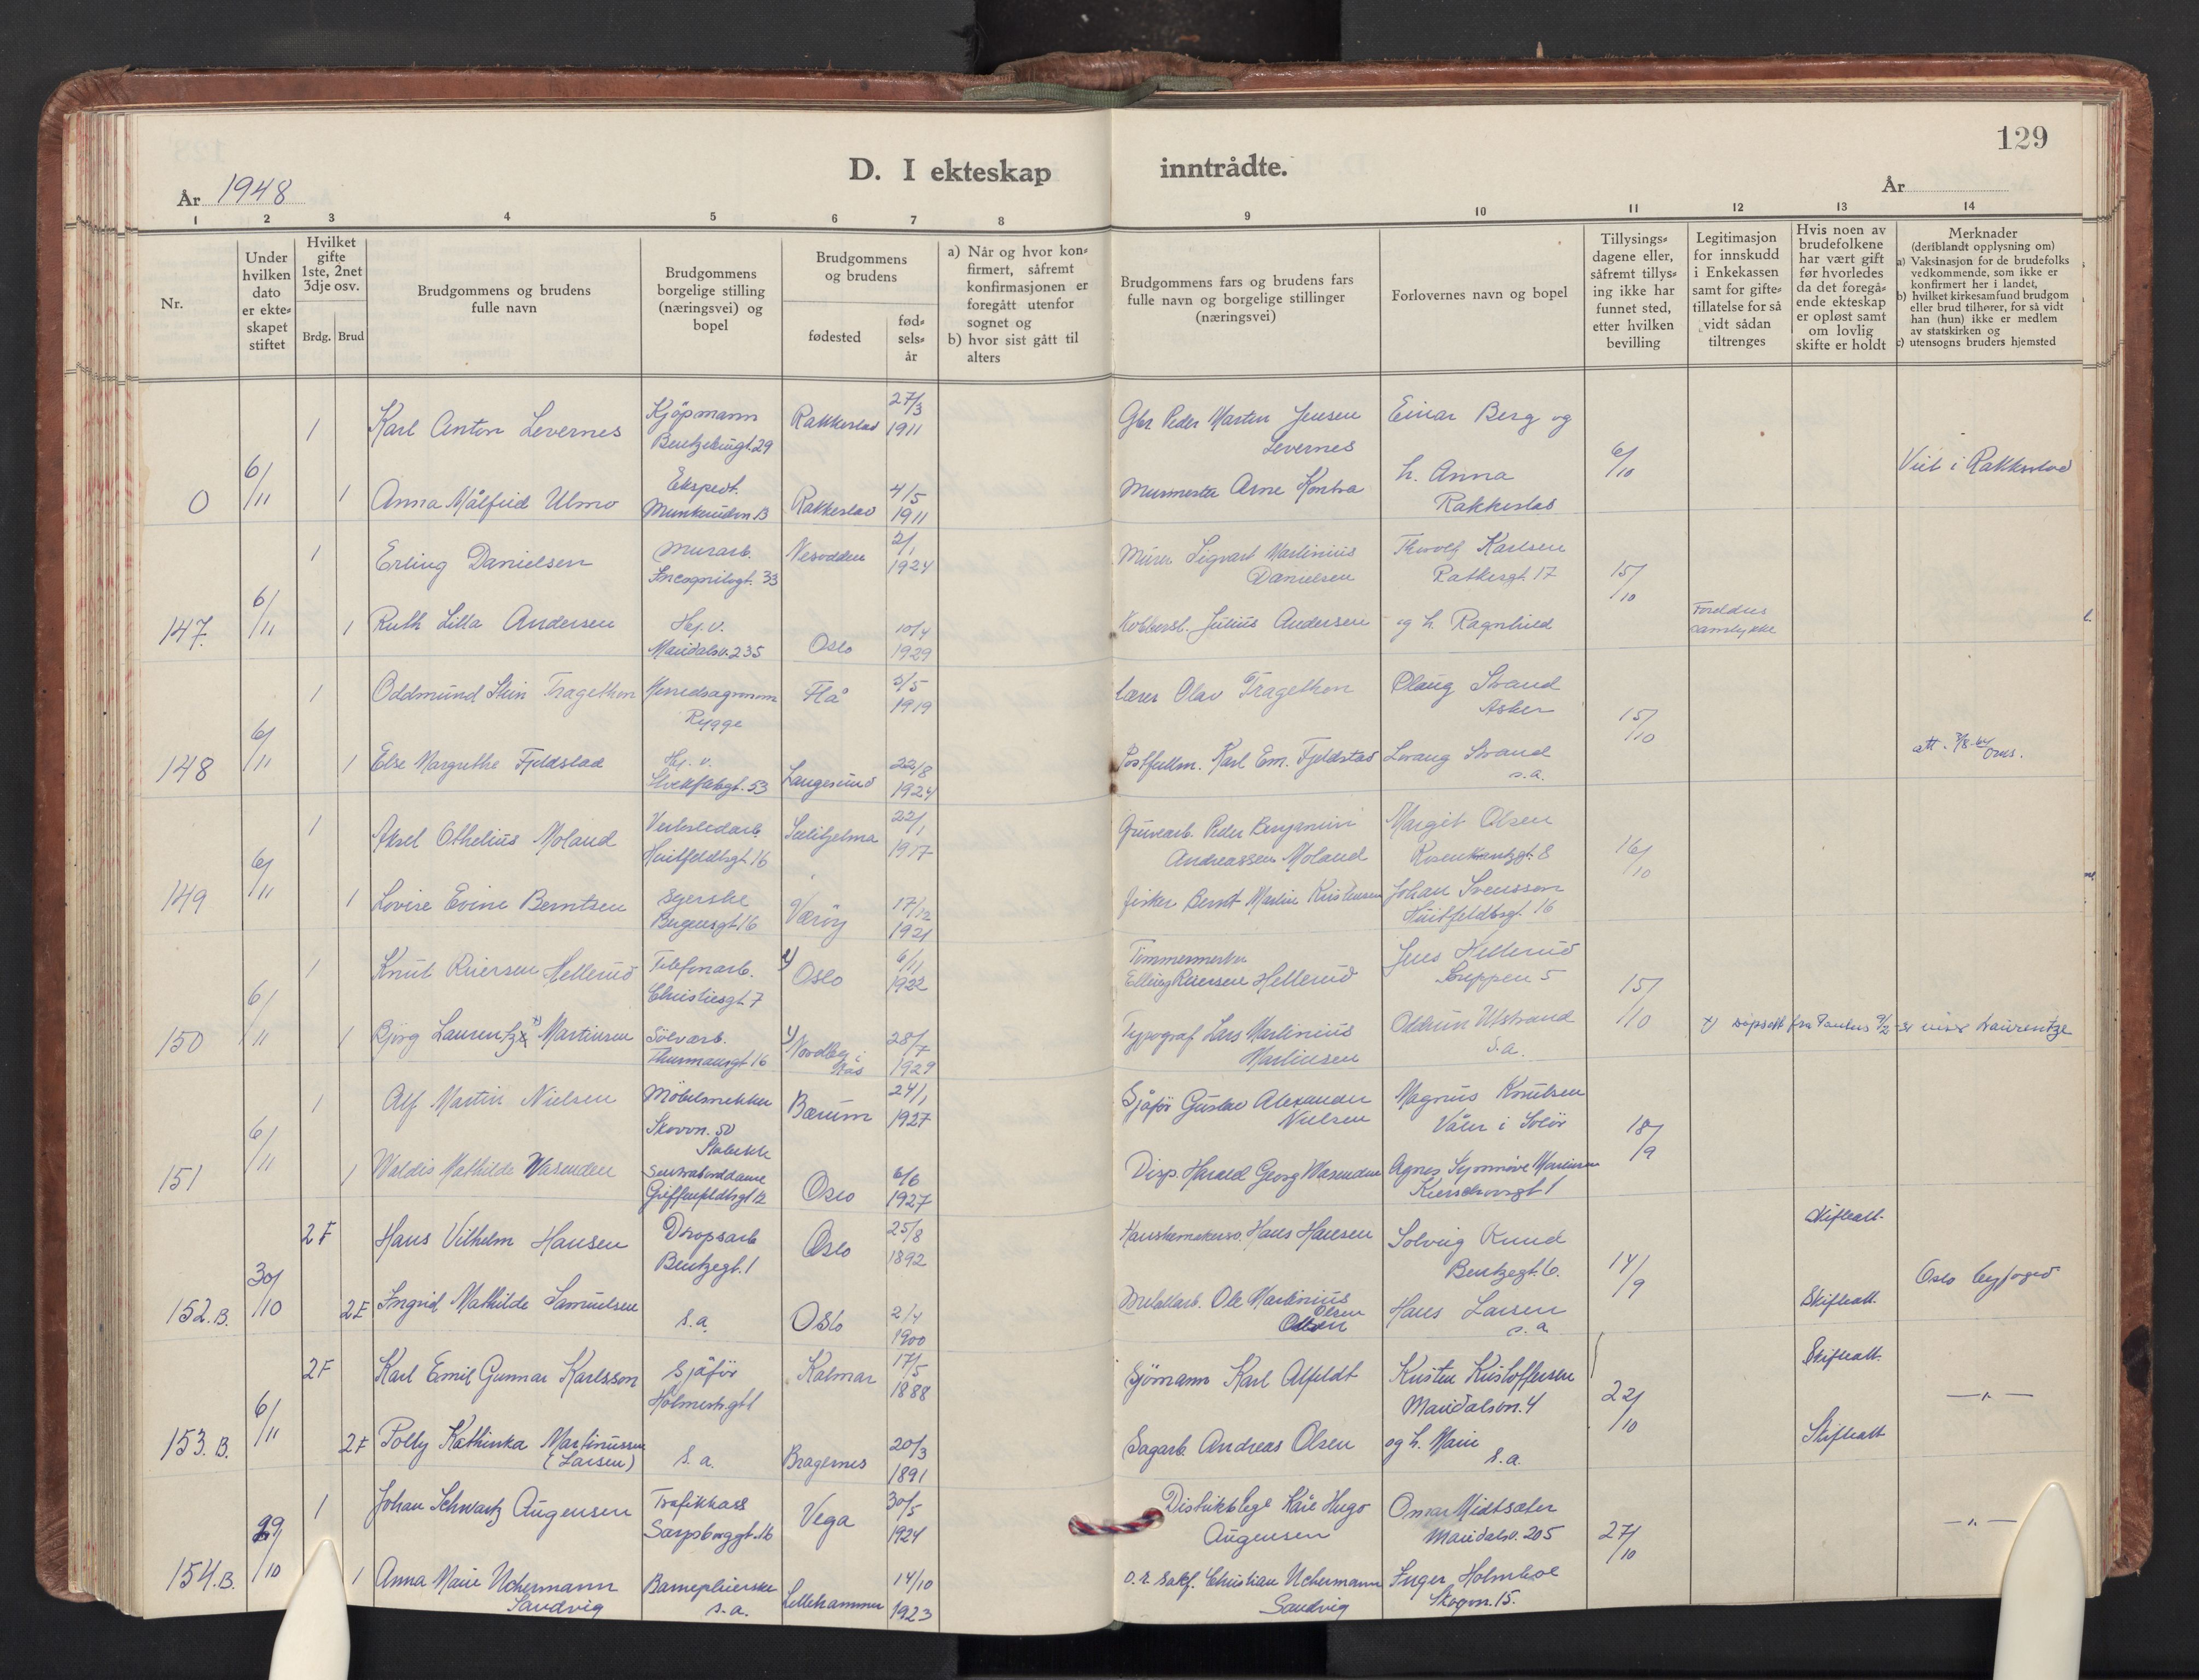 129
D. I ekteskap inntrådte.
År 1948
År
1 2 3 4 5 6 7 8 9 10 11 12 13 14
Nr.
Under
hvilken
dato
er ekte=
skapet
stiftet
Hvilket
gifte
1ste, 2net
3dje osv.
Brdg. Brud
Brudgommens og brudens
fulle navn
Brudgommens
borgelige stilling
(næringsvei) og
bopel
Brudgommens
og brudens
fødested
fød=
sels=
år
a) Når og hvor kon=
firmert, såfremt
konfirmasjonen er
foregått utenfor
sognet og
b) hvor sist gått til
alters
Brudgommens fars og brudens fars
fulle navn og borgelige stillinger
(næringsvei)
Forlovernes navn og bopel
Tillysings=
dagene eller,
såfremt tillys=
ing ikke har
funnet sted,
etter hvilken
bevilling
Legitimasjon
for innskudd
i Enkekassen
samt for gifte=
tillatelse for så
vidt sådan
tiltrenges
Hvis noen av
brudefolkene
har vært gift
før hvorledes
da det foregå=
ende ekteskap
er opløst samt
om lovlig
skifte er holdt
Merknader
(deriblandt opplysning om)
a) Vaksinasjon for de brudefolks
vedkommende, som ikke er
konfirmert her i landet,
b) hvilket kirkesamfund brudgom
eller brud tilhører, for så vidt
han (hun) ikke er medlem
av statskirken og
c) utensogns bruders hjemsted
1 Karl Anton Levernes Kjöpmann Rakkestad 27/3 Gbr Peder Martin Jensen Einar Berg og
29 1911 Levernes
0 6/11 1 Anna Målfrid Ulmo Ekspedt. Rakkestad 4/5 Arne h. Anna 6/10 Viet i Rakkestad
13 1911 Rakkestad
1 Erling Danielsen Murarb. Nesodden 2/1 Murer Sigvart Martinius Thorolf Karlsen
Incognitogt. 33 1924 Danielsen Ratkesgt. 17 15/10
147. 6/11 1 Ruth Lilla Andersen Hj.v. 10/4 Julius Andersen og h. Ragnhild Foreldres
Maridalsv. 235 Oslo 1929 samtykke
1 Oddmund Stein Tragethon Herredsagronom Flå 5/5 Lærer Olav Tragethon Olaug Strand
Rygge 1919 Asker 15/10
148 6/11 1 Else Margrethe Fjeldstad Hj. v. Langesund 22/8 Karl Em. Fjeldstad Strand att.
53 1924 s.a.
1 Aksel Othelius Moland Verkstedarb. Sulitjelma 22/1 Gruvearb. Peder Benjamin Margit Olsen
Huitfeldtsgt. 16 1917 Andreassen Moland Rosenkrantzgt. 8 16/10
149 6/11 1 Lovise Evine Berntsen Syerske Værøy 17/12 Fisker Bernt Martin Kristensen Johan Svensson
Bergensgt. 16 1921 Huitfeldtsgt. 16
1 Knut Reiersen Hellerud Telefonarb. Oslo 6/11 Tømmermester Jens Hellerud
Christiesgt. 7 1922 Elling Reiersen Hellerud 5 15/10
150 6/11 1 Bjørg Martinsen Sølvarb. Nordby i 28/7 Typograf Lars Martinius Oddrun x) dåpsatt fra Paulus
16 Ås 1929 Martinsen s.a.
1 Alf Martin Nielsen Möbelsnekker Bærum 24/1 Sjåfør Gustav Alexander Magnus Knutsen
Skovvn. 50 1927 Nielsen Våler i Solör 18/9
Stabekk
151 6/11 1 Mathilde Wasenden Sentralborddame Oslo 6/6 Disp. Harald Georg Wasenden Agnes Synnøve
Griffenfeldtsgt 12 1927 Kierschowsgt 1
2 F Hans Vilhelm Hansen Dropsarb Oslo 25/8 Hans Hansen Solveig Rund Skifteatt.
Bentzegt. 1 1892 Bentzegt. 6. 14/9
152.B. 30/10 2 F Ingrid Mathilde Samuelsen s.a. Oslo 2/4 Ole Martinius Hans Larsen Skifteatt. Oslo byfoged
1900 Olsen s.a.
2 F Karl Emil Gunnar Karlsson Sjåfør Kalmar 17/5 Sjömann Karl Alfeldt Kristen Kristoffersen Skifteatt.
Holmestr.gt 1 1888 Maridalsvn. 4 22/10 —"—
153.B. 6/11 2 F Polly Kathinka Martinussen s.a. Bragernes 20/3 Sagarb. Andreas Olsen og h. Marie Skifteatt
(Larsen) 1891 s.a.
1 Johan Schwartz Augensen Trafikkass Vega 30/5 Distriktslege Kåre Hugo Omar Midtsæter
Sarpsborggt. 16 1924 Augensen Maridalsv. 205 27/10 —"—
154.B. 29/10 1 Anna Marie Uchermann Barnepleierske Lillehammer 14/10 o.r. sakf. Christian Uchermann Inger Holmboe
Sandvig s.a. 1923 Sandvig Skogvn. 15.